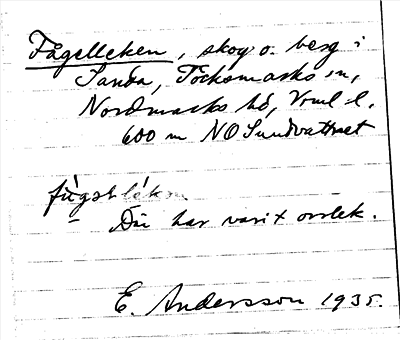 Fågelleken, skog o. berg i
Sanda, Töcksmarks sn,
Nordmarks hd, Vrml. l.
600 m NO Sundvattnet
fúgəl-lék
Där har varit orrlek.
E. Andersson 1935.